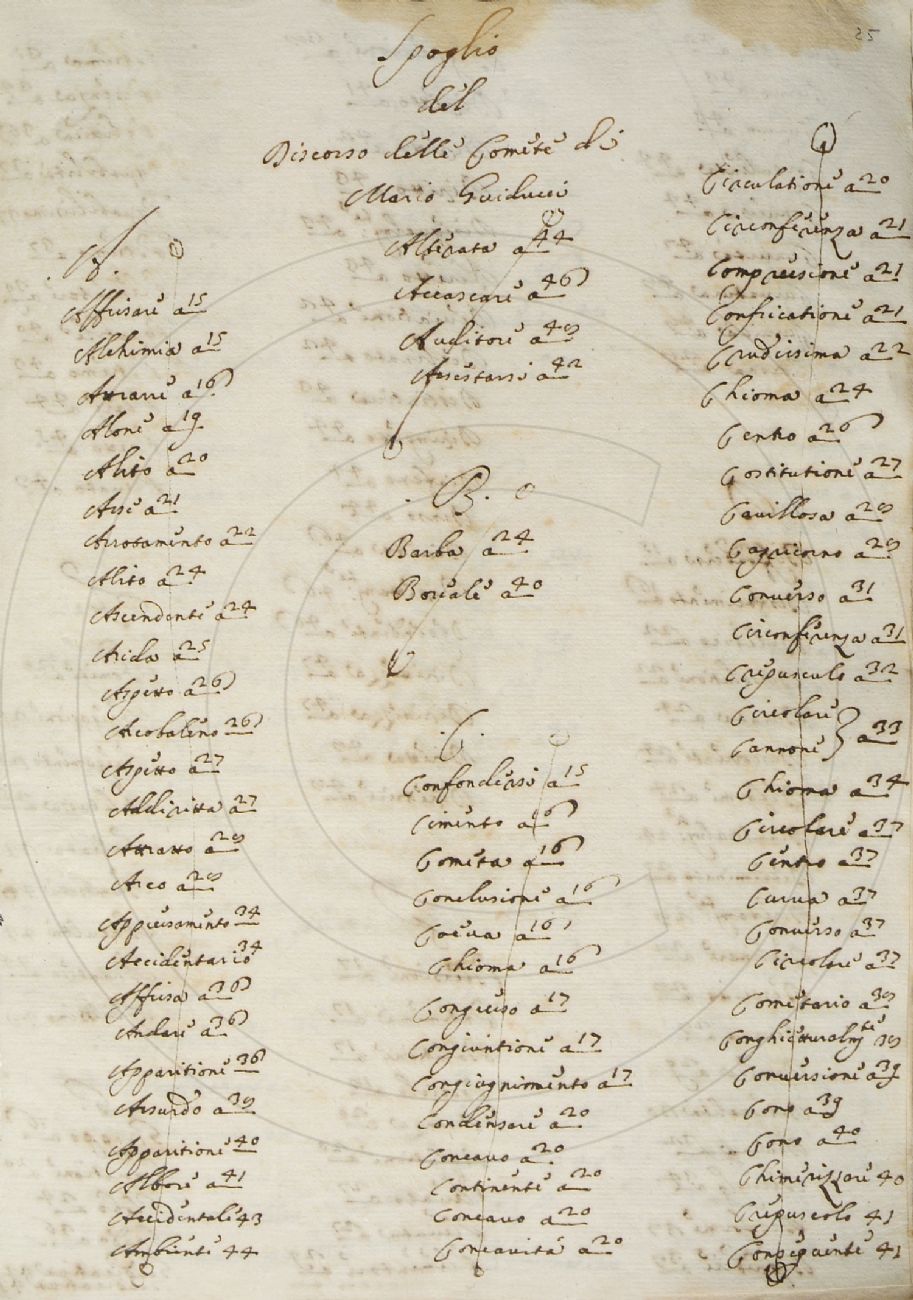 25
Spoglio
del
Discorso delle Comete di
Mario Guiducci
.A.
Affisare a 15
Alchimia a 15
Attrarre a 16
Alone a 19
Alito a 20
Arse a 21
Arrotamento a 22
Alito a 24
Ascendente a 24
Arida a 25
Aspetto a 26
Arcobaleno 26
Aspetto a 27
Addiritta a 27
Attratto a 28
Arco a 28
Appressamento 34
Accidentario 34
Affisa a 36
Andare a 36
Apparitione 36
Assurdo a 38
Apparitione 40
Albore a 41
Accidentale 43
Ambiente 44
Alterata a 44
Accascare a 46
Auditore a 48
Arrestarsi a 42
.B.
Barba a 24
Boreale a 40
.C.
Confondersi a 15
Cimento a 16
Cometa a 16
Conclusione a 16
Coeva a 16
Chioma a 16
Congresso a 17
Congiuntione a 17
Congiugnimento a 17
Condensare a 20
Concavo a 20
Continente a 20
Concavo a 20
Concavità a 20
Circulatione a 20
Circonferenza a 21
Compressione a 21
Confricatione a 21
Crudissima a 22
Chioma a 24
Centro a 26
Costitutione a 27
Cavillosa a 28
Capricorno a 28
Converso a 31
Circonferenza a 31
Crepusculo a 32
Circolare
Cannone } a 33
Chioma a 34
Circolare a 37
Centro a 37
Curva a 37
Converso a 37
Circolare a 37
Cometario a 38
Conghietturalmte 38
Conversione a 39
Cono a 39
Cono a 40
Chimerizzare 40
Crepuscolo 41
Conseguente 41